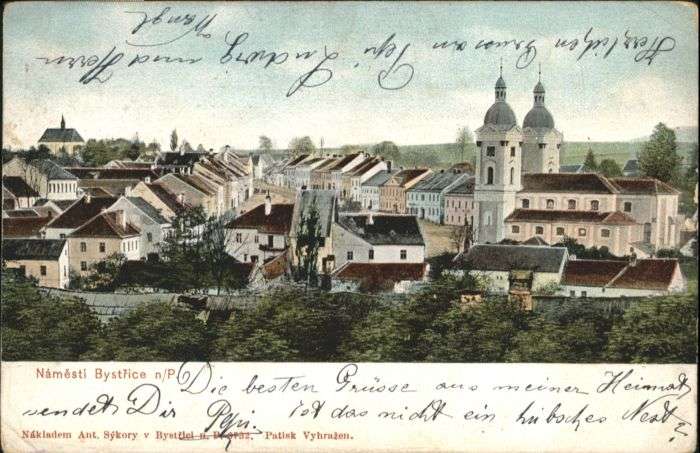 Herzlichen Gruss an Pepi, Ludwig und Herrn
Wenzl
Náměstí Bystřice n/P.
Die besten Grüsse aus meiner Heimat
sendet Dir Pepi. Ist das nicht ein hübsches Nest?
Nákladem Ant. Sýkory v Bystřici n. P. 3732. Patisk Vyhražen.